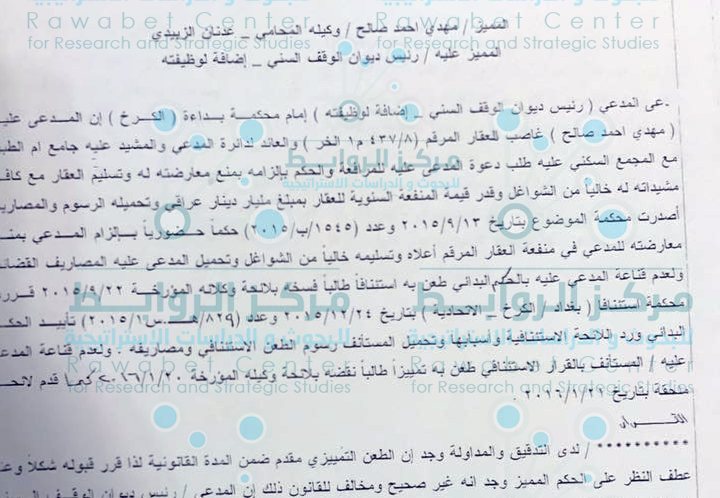 المميز / مهدي احمد صالح / وكيله المحامي _ عدنان الزبيدي
المميز عليه / رئيس ديوان الوقف السني _ إضافة لوظيفته
عى المدعي ( رئيس ديوان الوقف السني _ إضافة لوظيفته ) إمام محكمة بداءة ( الكرخ ) إن المدعى عليه
( مهدي احمد صالح ) غاصب للعقار المرقم ( ٤٣٧/٨ م١ الخر ) والعائد لدائرة المدعي والمشيد عليه جامع ام الطب
مع المجمع السكني عليه طلب دعوة المدعى عليه للمرافعة والحكم بإلزامه بمنع معارضته له وتسليم العقار مع كاف
مشيداته له خالياً من الشواغل وقدر قيمة المنفعة السنوية للعقار بمبلغ مليار دينار عراقي وتحميله الرسوم والمصاريف
أصدرت محكمة الموضوع بتاريخ ٢٠١٥/٩/١٣ وعدد (١٥٤٥/ب/٢٠١٥) حكماً حضورياً بإلزام المدعي بمنع
معارضته للمدعي في منفعة العقار المرقم أعلاه وتسليمه خالياً من الشواغل وتحميل المدعى عليه المصاريف القضائ
ولعدم قناعة المدعى عليه بالحكم البدائي طعن به استئنافاً طالباً فسخه بلائحة وكلائه المؤرخة ٢٠١٥/٩/٢٢ قررت
محكمة استئناف ( بغداد / الكرخ _ الاتحادية ) بتاريخ ٢٠١٥/١٢/٢٤ وعدد (٨٢٩/هـ س/٢٠١٥) تأييد الحكم
البدائي ورد اللائحة الاستئنافية وأسبابها وتحميل المستأنف رسوم الطعن الاستئنافي ومصاريفه . ولعدم قناعة المدعى
عليه / المستأنف بالقرار الاستئنافي طعن به تمييزاً طالباً نقضه بلائحة وكيله المؤرخة ٢٠١٦/١/٢٠ كما قدم لائحة
ملحقة بتاريخ ٢٠١٦/١/٢١ .
القـــرار
********** / لدى التدقيق والمداولة وجد إن الطعن التمييزي مقدم ضمن المدة القانونية لذا قرر قبوله شكلاً وعند
عطف النظر على الحكم المميز وجد انه غير صحيح ومخالف للقانون ذلك إن المدعي / رئيس ديوان الوقف السن
مركز الروابط
للبحوث و الدراسات الاستراتيجية
Rawabet Center
for Research and Strategic Studies